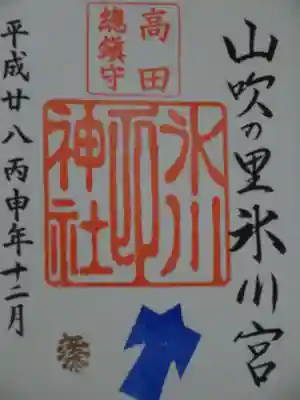 山吹の里氷川宮
高田
總鎮守
氷川
神社
平成廿八丙申年十二月